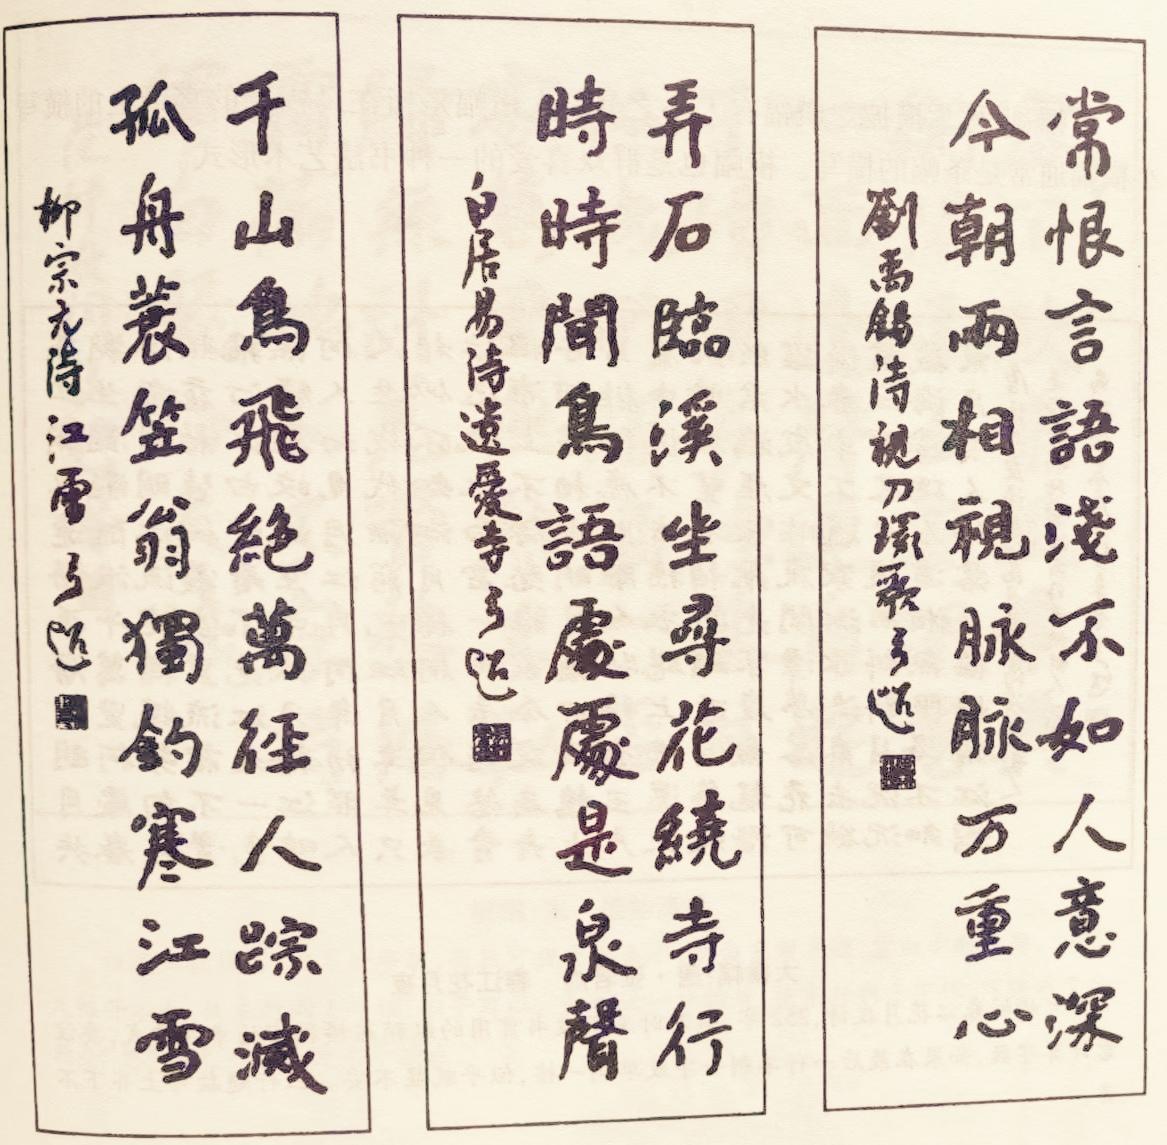 常恨言語淺不如人意深
今朝兩相視脉脉万重心
劉禹錫诗視刀環歌
弄石臨溪坐尋花繞寺行
時時聞鳥語處處是泉聲
白居易诗遗愛寺
千山鳥飛絶萬徑人踪滅
孤舟蓑笠翁獨釣寒江雪
柳宗元诗江雪